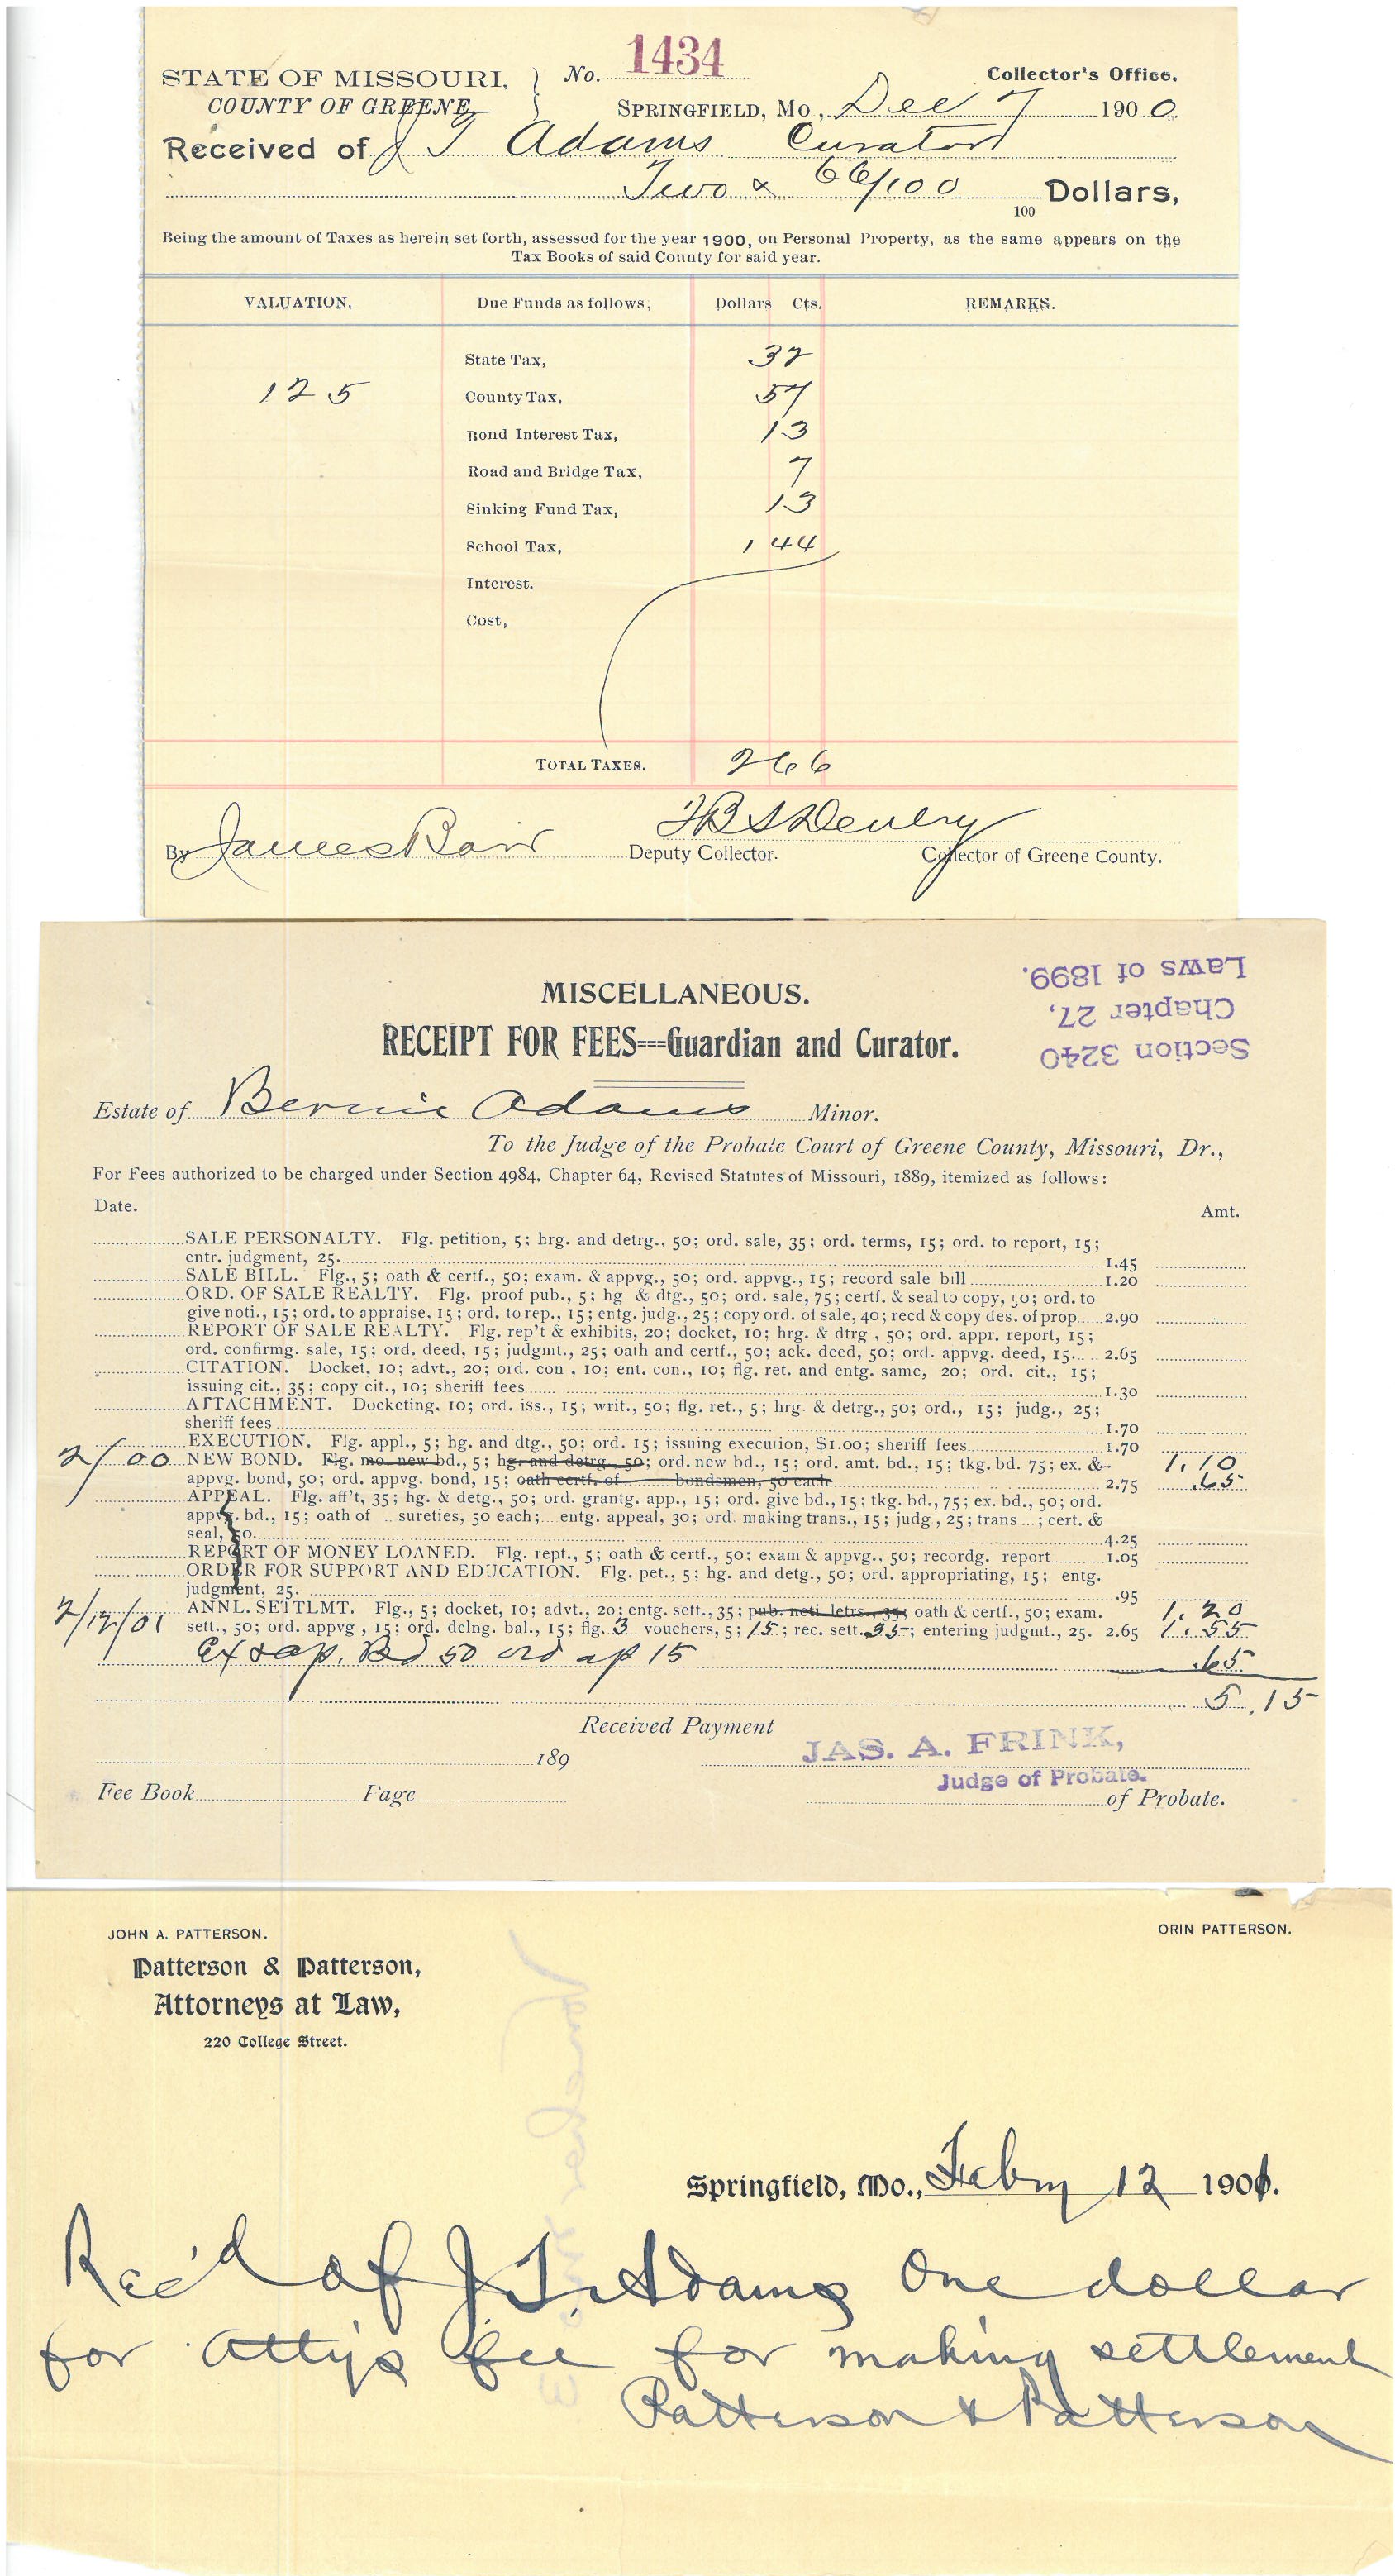 STATE OF MISSOURI, No. 1434 Collector's Office.
COUNTY OF GREENE SPRINGFIELD, Mo., Dec 7 1900
Received of J T Adams Curator
Two & 66/100 100 Dollars,
Being the amount of Taxes as herein set forth, assessed for the year 1900, on Personal Property, as the same appears on the
Tax Books of said County for said year.
VALUATION. Due Funds as follows: Dollars Cts. REMARKS.
State Tax, 37
125 County Tax, 57
Bond Interest Tax, 13
Road and Bridge Tax, 7
Sinking Fund Tax, 13
School Tax, 1 44
Interest.
Cost,
TOTAL TAXES. 2 66
By James Deputy Collector. Collector of Greene County.
Section 3240
Chapter 27,
Laws of 1899.
MISCELLANEOUS.
RECEIPT FOR FEES---Guardian and Curator.
Estate of Bernie Adams Minor.
To the Judge of the Probate Court of Greene County, Missouri, Dr.,
For Fees authorized to be charged under Section 4984, Chapter 64, Revised Statutes of Missouri, 1889, itemized as follows:
Date. Amt.
SALE PERSONALTY. Flg. petition, 5; hrg. and detrg., 50; ord. sale, 35; ord. terms, 15; ord. to report, 15;
entr. judgment, 25. 1.45
SALE BILL. Flg., 5; oath & certf., 50; exam. & appvg., 50; ord. appvg., 15; record sale bill 1.20
ORD. OF SALE REALTY. Flg. proof pub., 5; hg. & dtg., 50; ord. sale, 75; certf. & seal to copy, 50; ord. to
give noti., 15; ord. to appraise, 15; ord. to rep., 15; entg. judg., 25; copy ord. of sale, 40; recd & copy des. of prop. 2.90
REPORT OF SALE REALTY. Flg. rep't & exhibits, 20; docket, 10; hrg. & dtrg, 50; ord. appr. report, 15;
ord. confirmg. sale, 15; ord. deed, 15; judgmt., 25; oath and certf., 50; ack. deed, 50; ord. appvg. deed, 15. 2.65
CITATION. Docket, 10; advt., 20; ord. con, 10; ent. con., 10; flg. ret. and entg. same, 20; ord. cit., 15;
issuing cit., 35; copy cit., 10; sheriff fees 1.30
ATTACHMENT. Docketing, 10; ord. iss., 15; writ., 50; flg. ret., 5; hrg. & detrg., 50; ord., 15; judg., 25;
sheriff fees 1.70
EXECUTION. Flg. appl., 5; hg. and dtg., 50; ord. 15; issuing execution, $1.00; sheriff fees 1.70
2/ 00 NEW BOND. Flg. mo. new bd., 5; hg. and detrg. 50; ord. new bd., 15; ord. amt. bd., 15; tkg. bd. 75; ex. & 1.10
appvg. bond, 50; ord. appvg. bond, 15; oath certf. of bondsmen, 50 each 2.75 .65
APPEAL. Flg. aff't, 35; hg. & detg., 50; ord. grantg. app., 15; ord. give bd., 15; tkg. bd., 75; ex. bd., 50; ord.
appvg. bd., 15; oath of sureties, 50 each; entg. appeal, 30; ord. making trans., 15; judg, 25; trans ; cert. &
seal, 50. 4.25
REPORT OF MONEY LOANED. Flg. rept., 5; oath & certf., 50; exam & appvg., 50; recordg. report 1.05
ORDER FOR SUPPORT AND EDUCATION. Flg. pet., 5; hg. and detg., 50; ord. appropriating, 15; entg.
judgment, 25. .95
2/12/01 ANNL. SETTLMT. Flg., 5; docket, 10; advt., 20; entg. sett., 35; pub. noti letrs., 35; oath & certf., 50; exam. 1.20
sett., 50; ord. appvg, 15; ord. dclng. bal., 15; flg. 3 vouchers, 5; 15; rec. sett. 35; entering judgmt., 25. 2.65 1.55
Ex & ap. Bd 50 ord ap 15 .65
5.15
Received Payment
189 JAS. A. FRINK,
Judge of Probate.
Fee Book Page of Probate.
JOHN A. PATTERSON. ORIN PATTERSON.
Patterson & Patterson,
Attorneys at Law,
220 College Street.
Springfield, Mo., Febry 12 1901.
Rec'd of J. T. Adams One dollar
for Atty's fee for making settlement
Patterson & Patterson